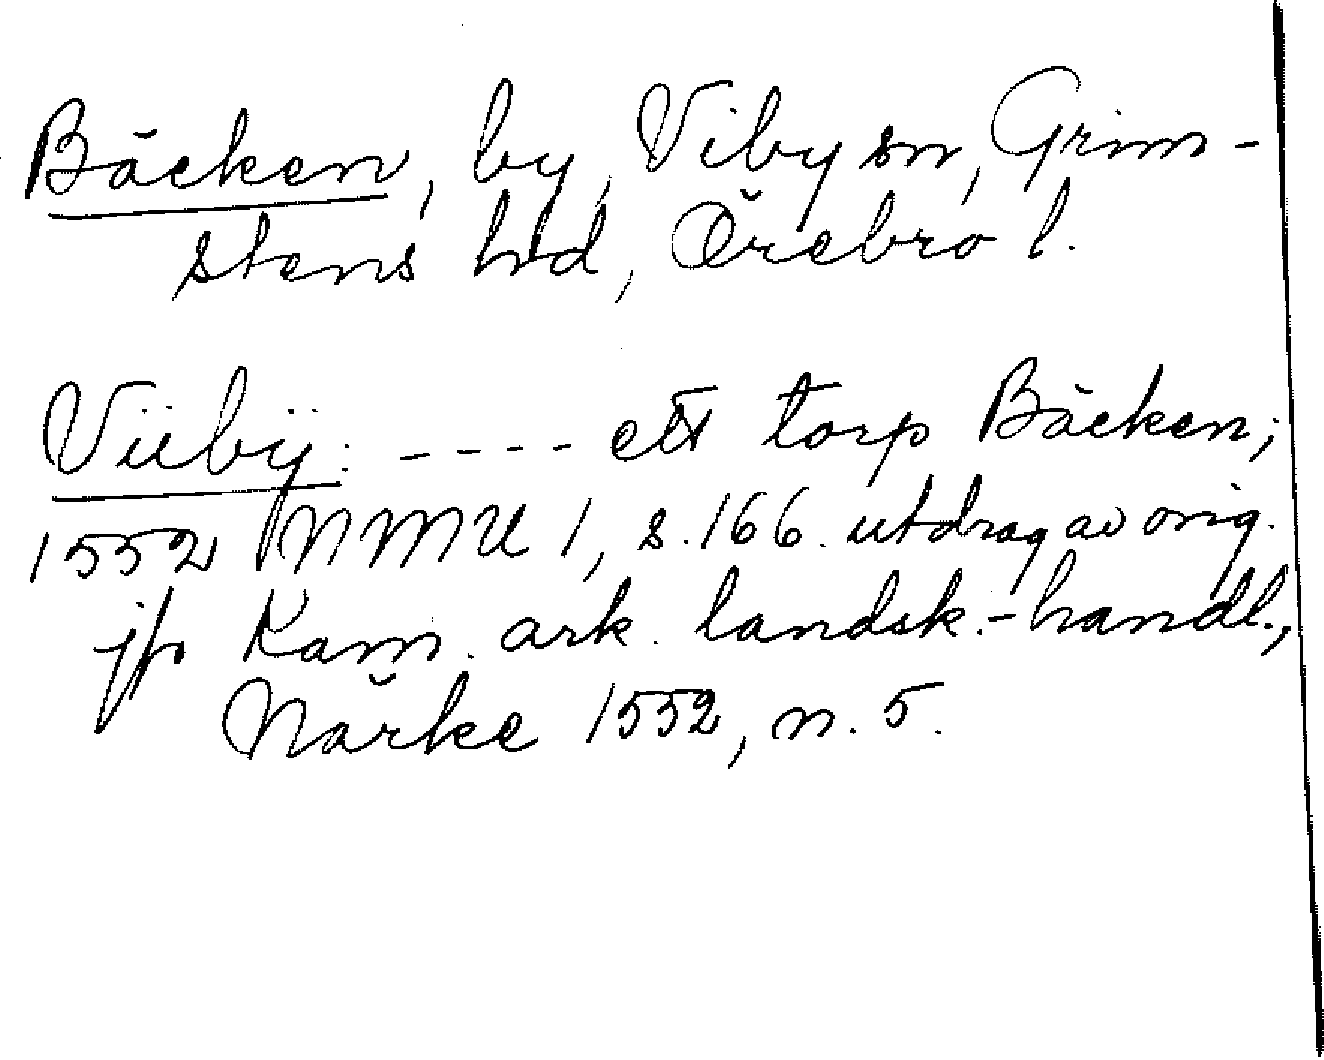 Bäcken, by, Viby sn, Grim-
stens hd, Örebro l.
Viibÿ: ---- ett torp Bäcken;
1552 NMU 1, s. 166. utdrag av orig.
jfr Kam. ark. landsk.-handl.,
Närke 1552, n. 5.